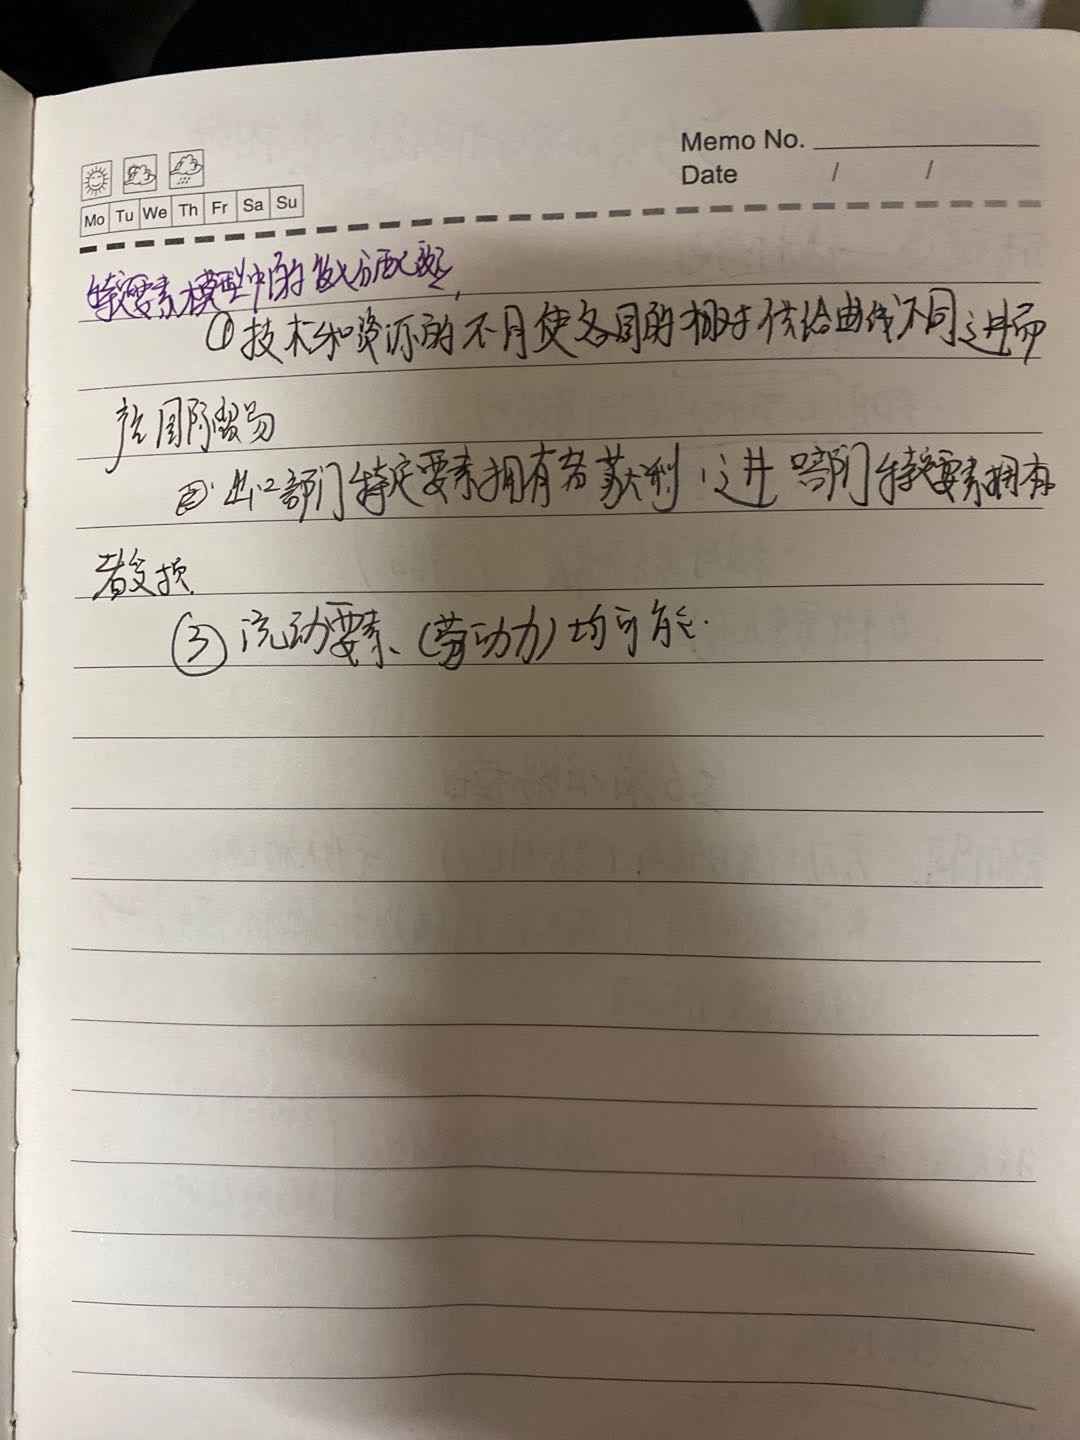 Memo No.
Date / /
Mo Tu We Th Fr Sa Su
特定要素模型中的收入分配问题
①技术和资源的不同使各国的相对供给曲线不同,进而
产生国际贸易
②出口部门特定要素拥有者获利,进口部门特定要素拥有
者受损.
③流动要素、(劳动力)均可能.